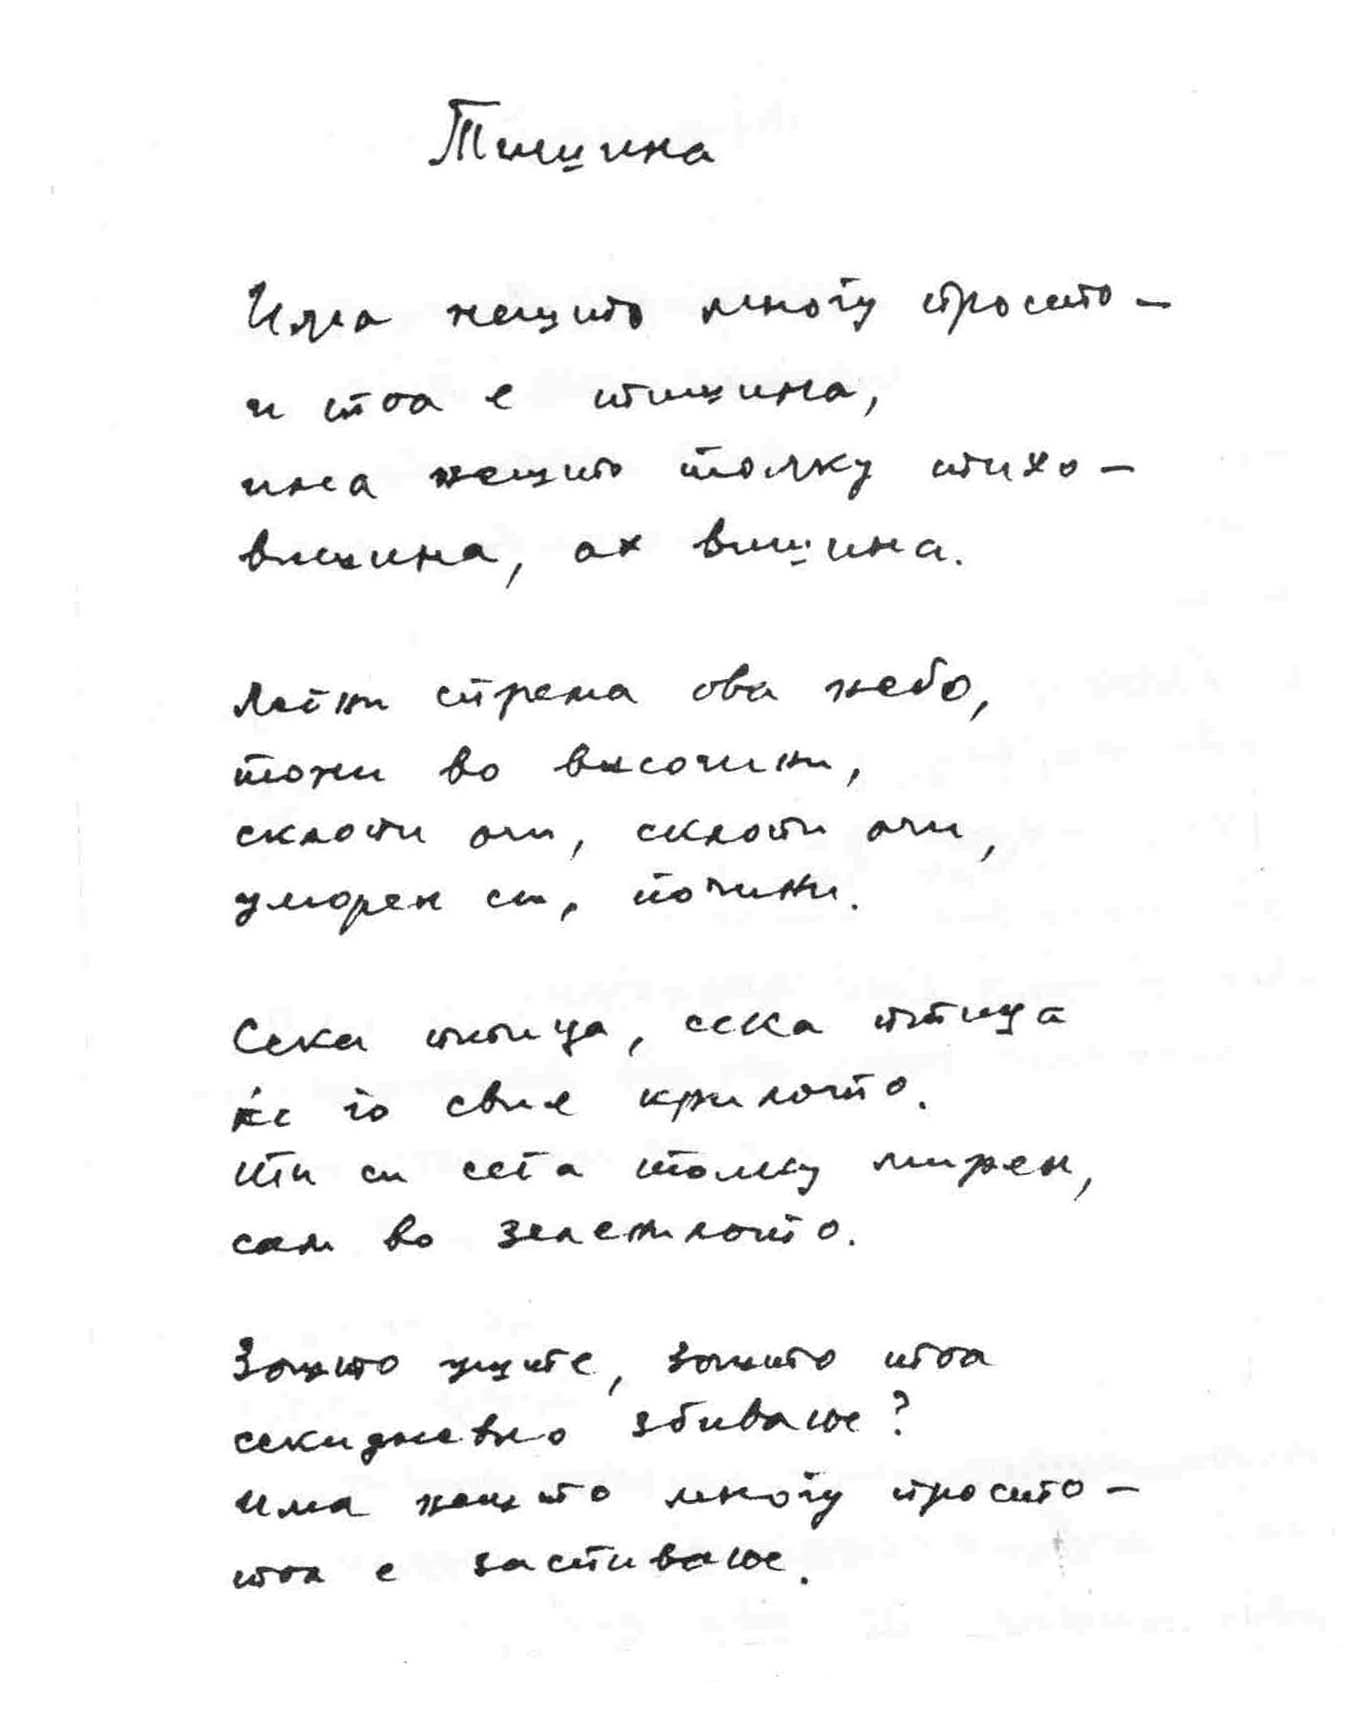 Тишина
Има нешто многу просто –
и тоа е тишина,
има нешто толку тихо –
вишина, ах вишина.
Легни спрема ова небо,
тони во височини,
склопи очи, склопи очи,
уморен си, почини.
Секоја птица, сека птица
ќе го свие крилото.
Ти си сега толку мирен,
сам во зеленилото.
Зошто уште, зошто тоа
секидневно збивање?
Има нешто многу просто –
тоа е заспивање.